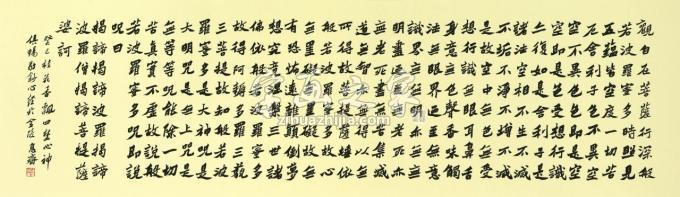 觀自在菩薩行深般
若波羅蜜多時照見
五蘊皆空度一切苦
厄舍利子色不異空
空不異色色即是空
空即是色受想行識
亦復如是舍利子是
諸法空相不生不滅
不垢不淨不增不減
是故空中無色無受
想行識無眼耳鼻舌
身意無色聲香味觸
法無眼界乃至無意
識界無無明亦無無
明盡乃至無老死亦
無老死盡無苦集滅
道無智亦無得以無
所得故菩提薩埵依
般若波羅蜜多故心
無罣礙無罣礙故無
有恐怖遠離顛倒夢
想究竟涅槃三世諸
佛依般若波羅蜜多
故得阿耨多羅三藐
三菩提故知般若波
羅蜜多是大神呪是
大明呪是無上呪是
無等等呪能除一切
苦真實不虛故說般
若波羅蜜多呪即說
呪曰
揭諦揭諦波羅揭諦
波羅僧揭諦菩提薩
婆訶
癸巳桂花香飄四望心神
俱暢敬心經於金陵
字画之家
zihuazhijia.com